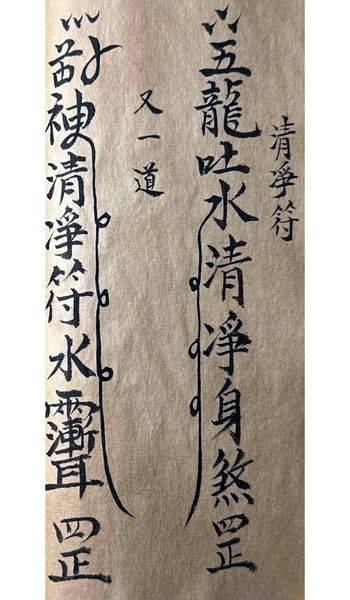 清凈符
五龍吐水清凈身煞罡
又一道
清凈符水罡